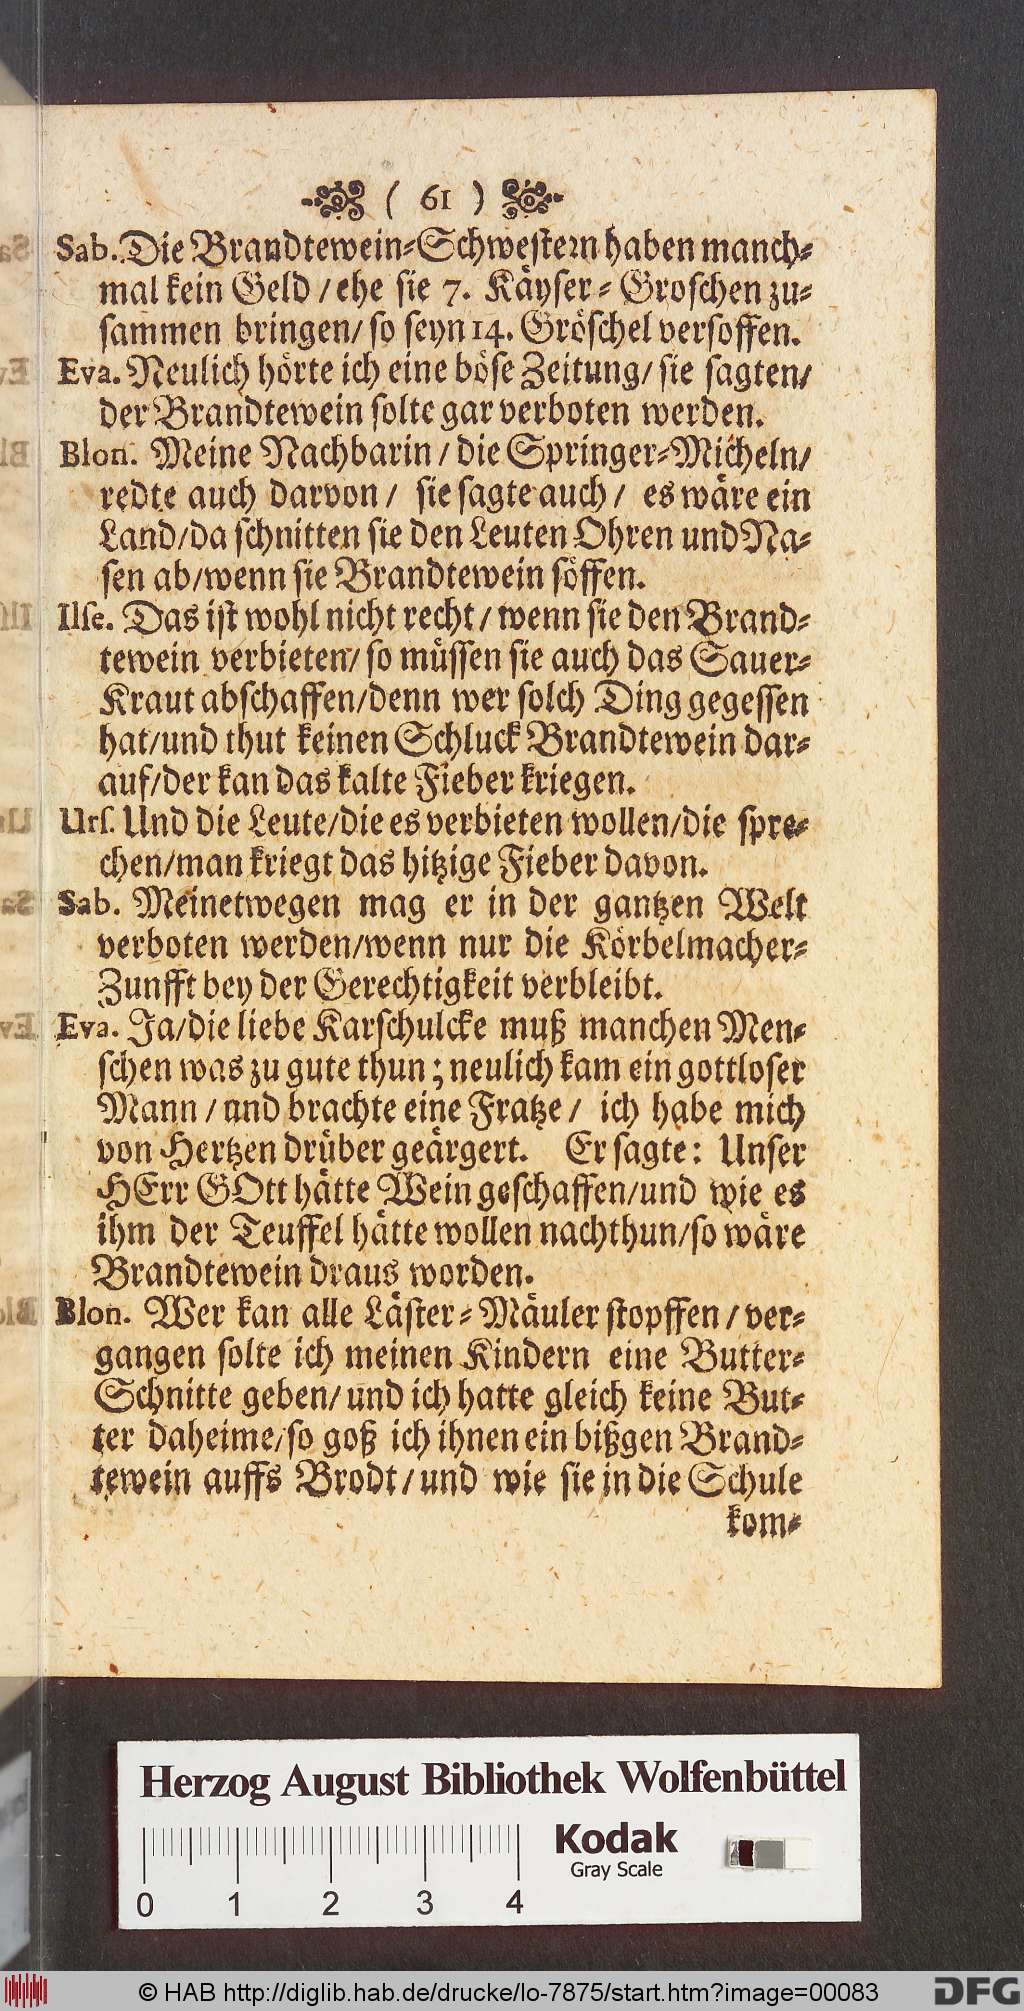 ( 61 )
Sab. Die Brandtewein-Schwestern haben manch-
mal kein Geld / ehe sie 7. Käyser-Groschen zu-
sammen bringen / so seyn 14. Gröschel versoffen.
Eva. Neulich hörte ich eine böse Zeitung / sie sagten /
der Brandtewein solte gar verboten werden.
Blon. Meine Nachbarin / die Springer-Micheln /
redte auch darvon / sie sagte auch / es wäre ein
Land / da schnitten sie den Leuten Ohren und Na-
sen ab / wenn sie Brandtewein söffen.
Ilse. Das ist wohl nicht recht / wenn sie den Brand-
tewein verbieten / so müssen sie auch das Sauer-
Kraut abschaffen / denn wer solch Ding gegessen
hat / und thut keinen Schluck Brandtewein dar-
auf / der kan das kalte Fieber kriegen.
Urs. Und die Leute / die es verbieten wollen / die spre-
chen / man kriegt das hitzige Fieber davon.
Sab. Meinetwegen mag er in der gantzen Welt
verboten werden / wenn nur die Körbelmacher-
Zunfft bey der Gerechtigkeit verbleibt.
Eva. Ja / die liebe Karschulcke muß manchen Men-
schen was zu gute thun ; neulich kam ein gottloser
Mann / und brachte eine Fratze / ich habe mich
von Hertzen drüber geärgert. Er sagte: Unser
HErr GOtt hätte Wein geschaffen / und wie es
ihm der Teuffel hätte wollen nachthun / so wäre
Brandtewein draus worden.
Blon. Wer kan alle Läster-Mäuler stopffen / ver-
gangen solte ich meinen Kindern eine Butter-
Schnitte geben / und ich hatte gleich keine But-
ter daheime / so goß ich ihnen ein bißgen Brand-
tewein auffs Brodt / und wie sie in die Schule
kom-
Herzog August Bibliothek Wolfenbüttel
Kodak
Gray Scale
0 1 2 3 4
© HAB http://diglib.hab.de/drucke/lo-7875/start.htm?image=00083
DFG